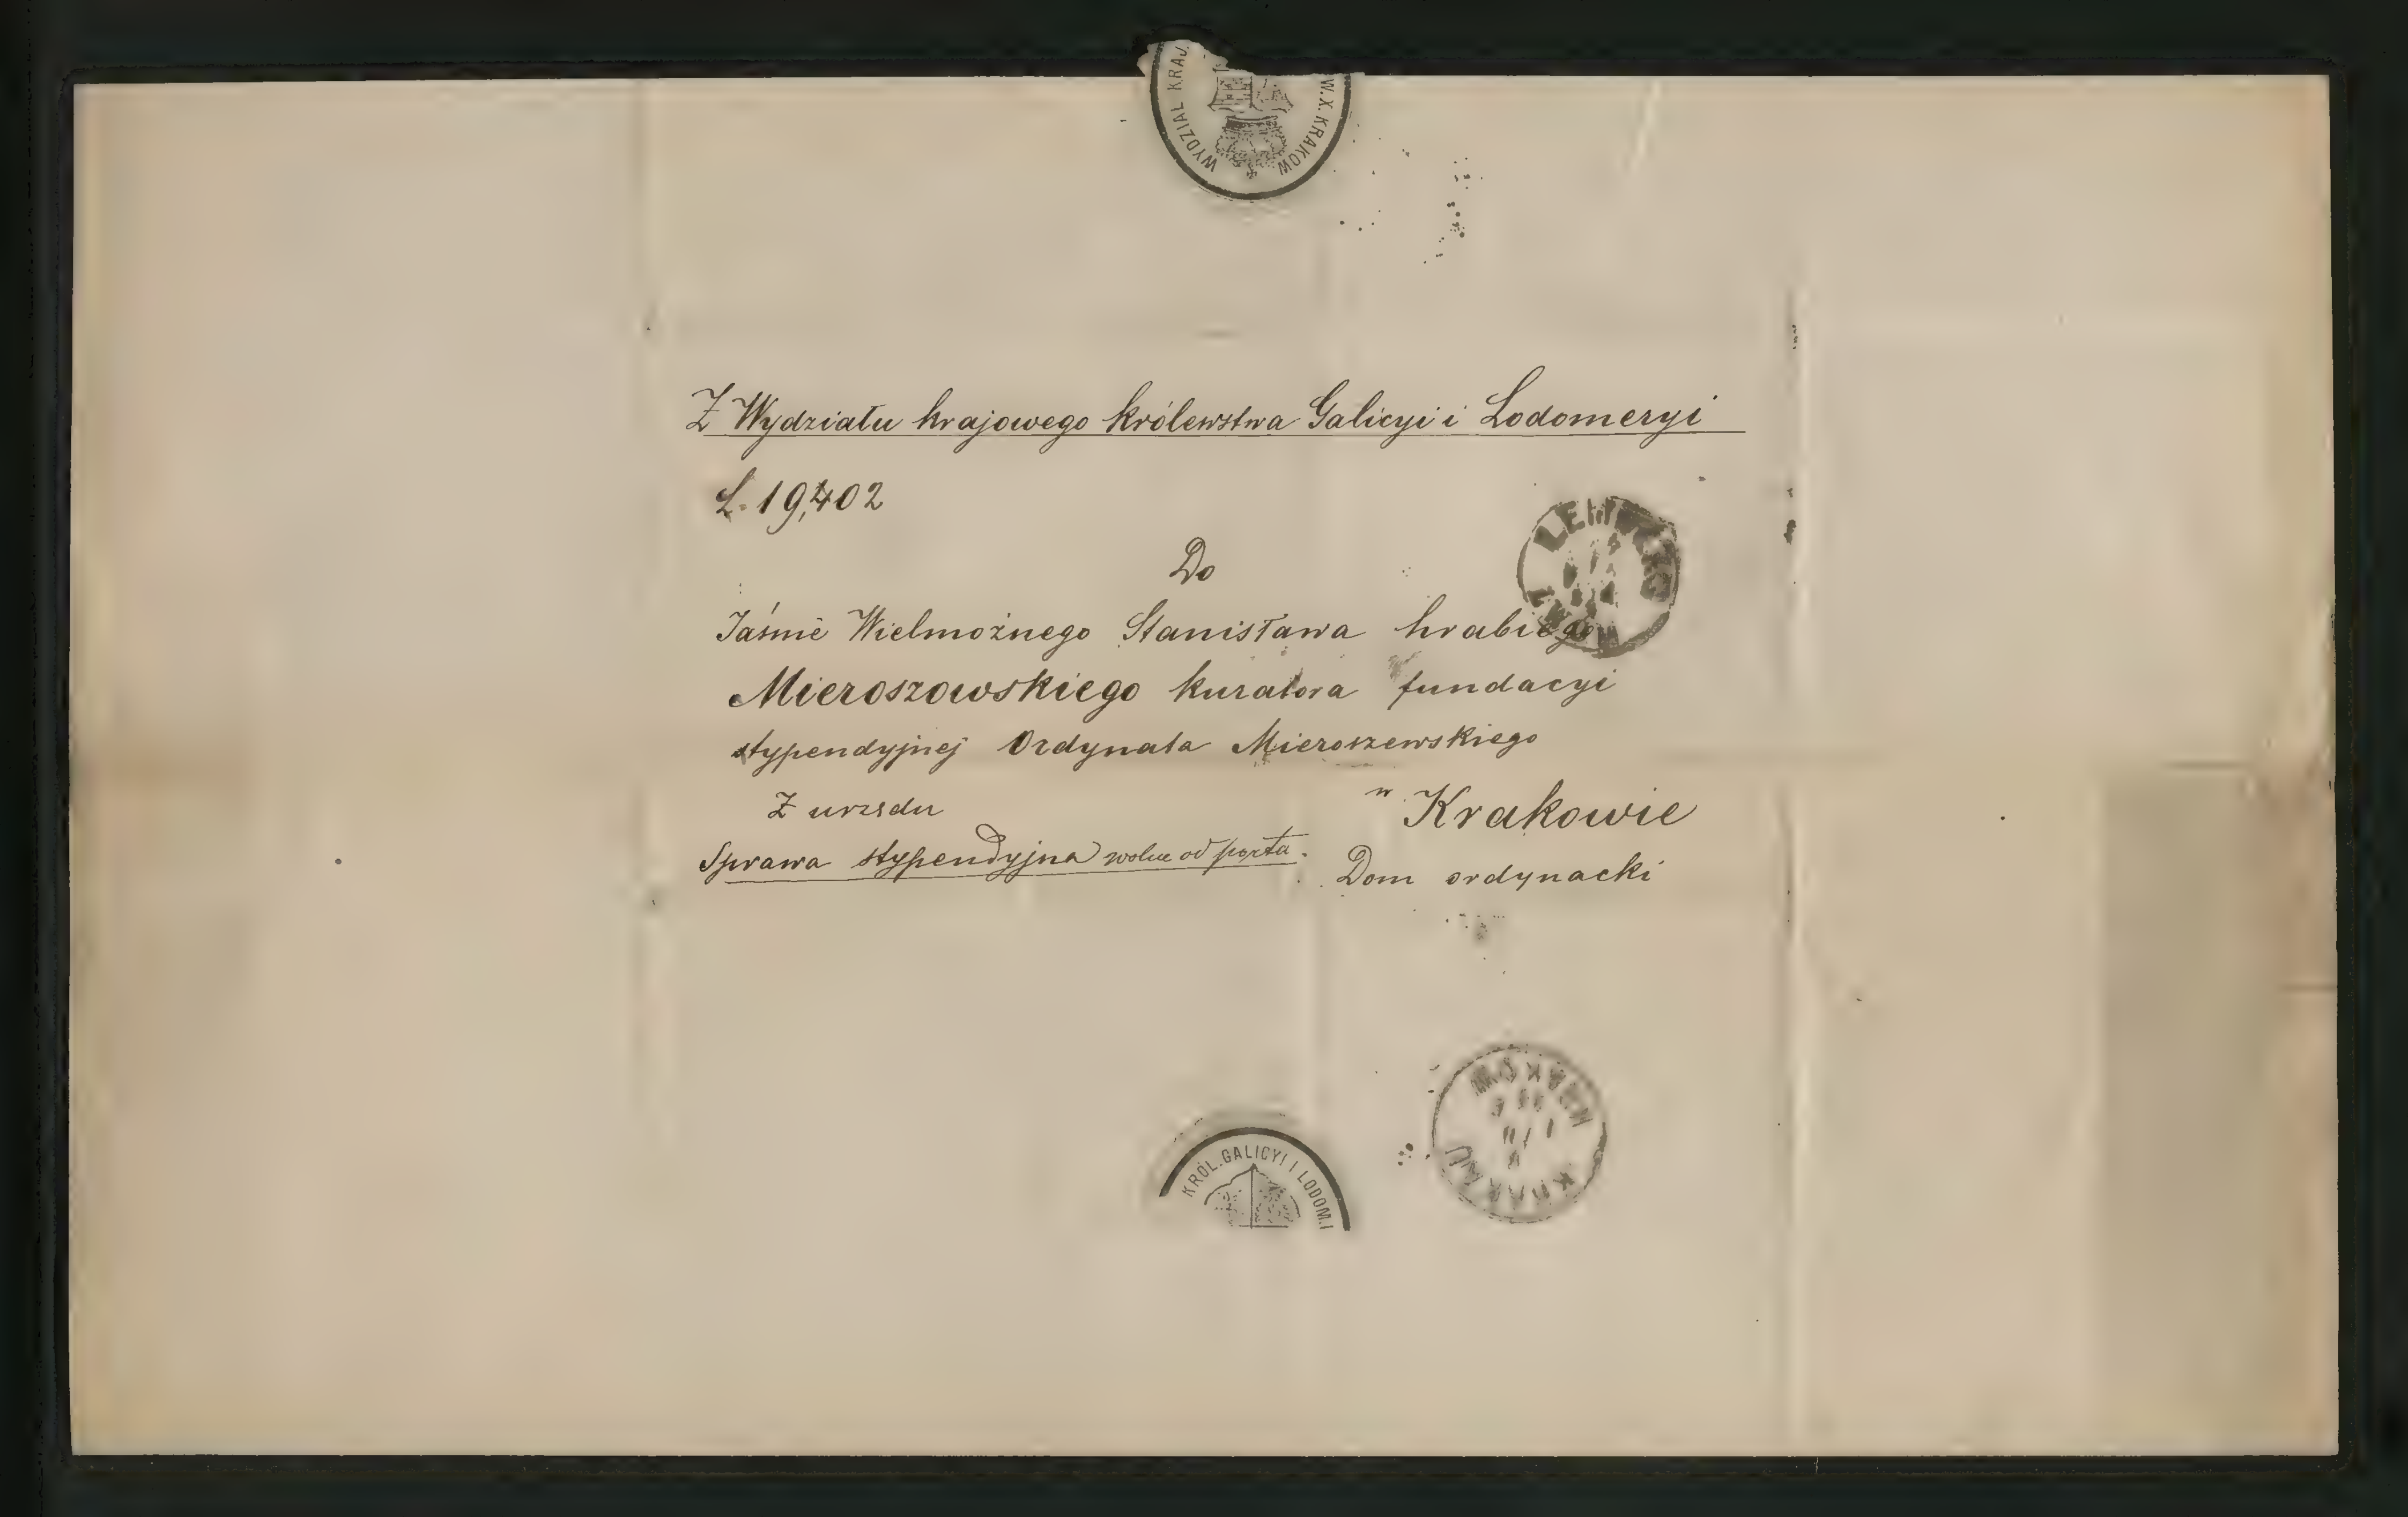 WYDZIAŁ KRAJ. W.X.KRAKOW
Z Wydziału krajowego królewstwa Galicyi i Lodomeryi
L. 19,402
LEMBERG
Do
Jaśnie Wielmożnego Stanisława hrabiego
Mieroszowskiego kuratora fundacyi
stypendyjnej Ordynata Mieroszewskiego
Z urzędu
w Krakowie
Sprawa stypendyjna wolne od porta.
Dom ordynacki
KRAKÓW
KRAKAU
KRÓL.GALICYI I LODOM.I